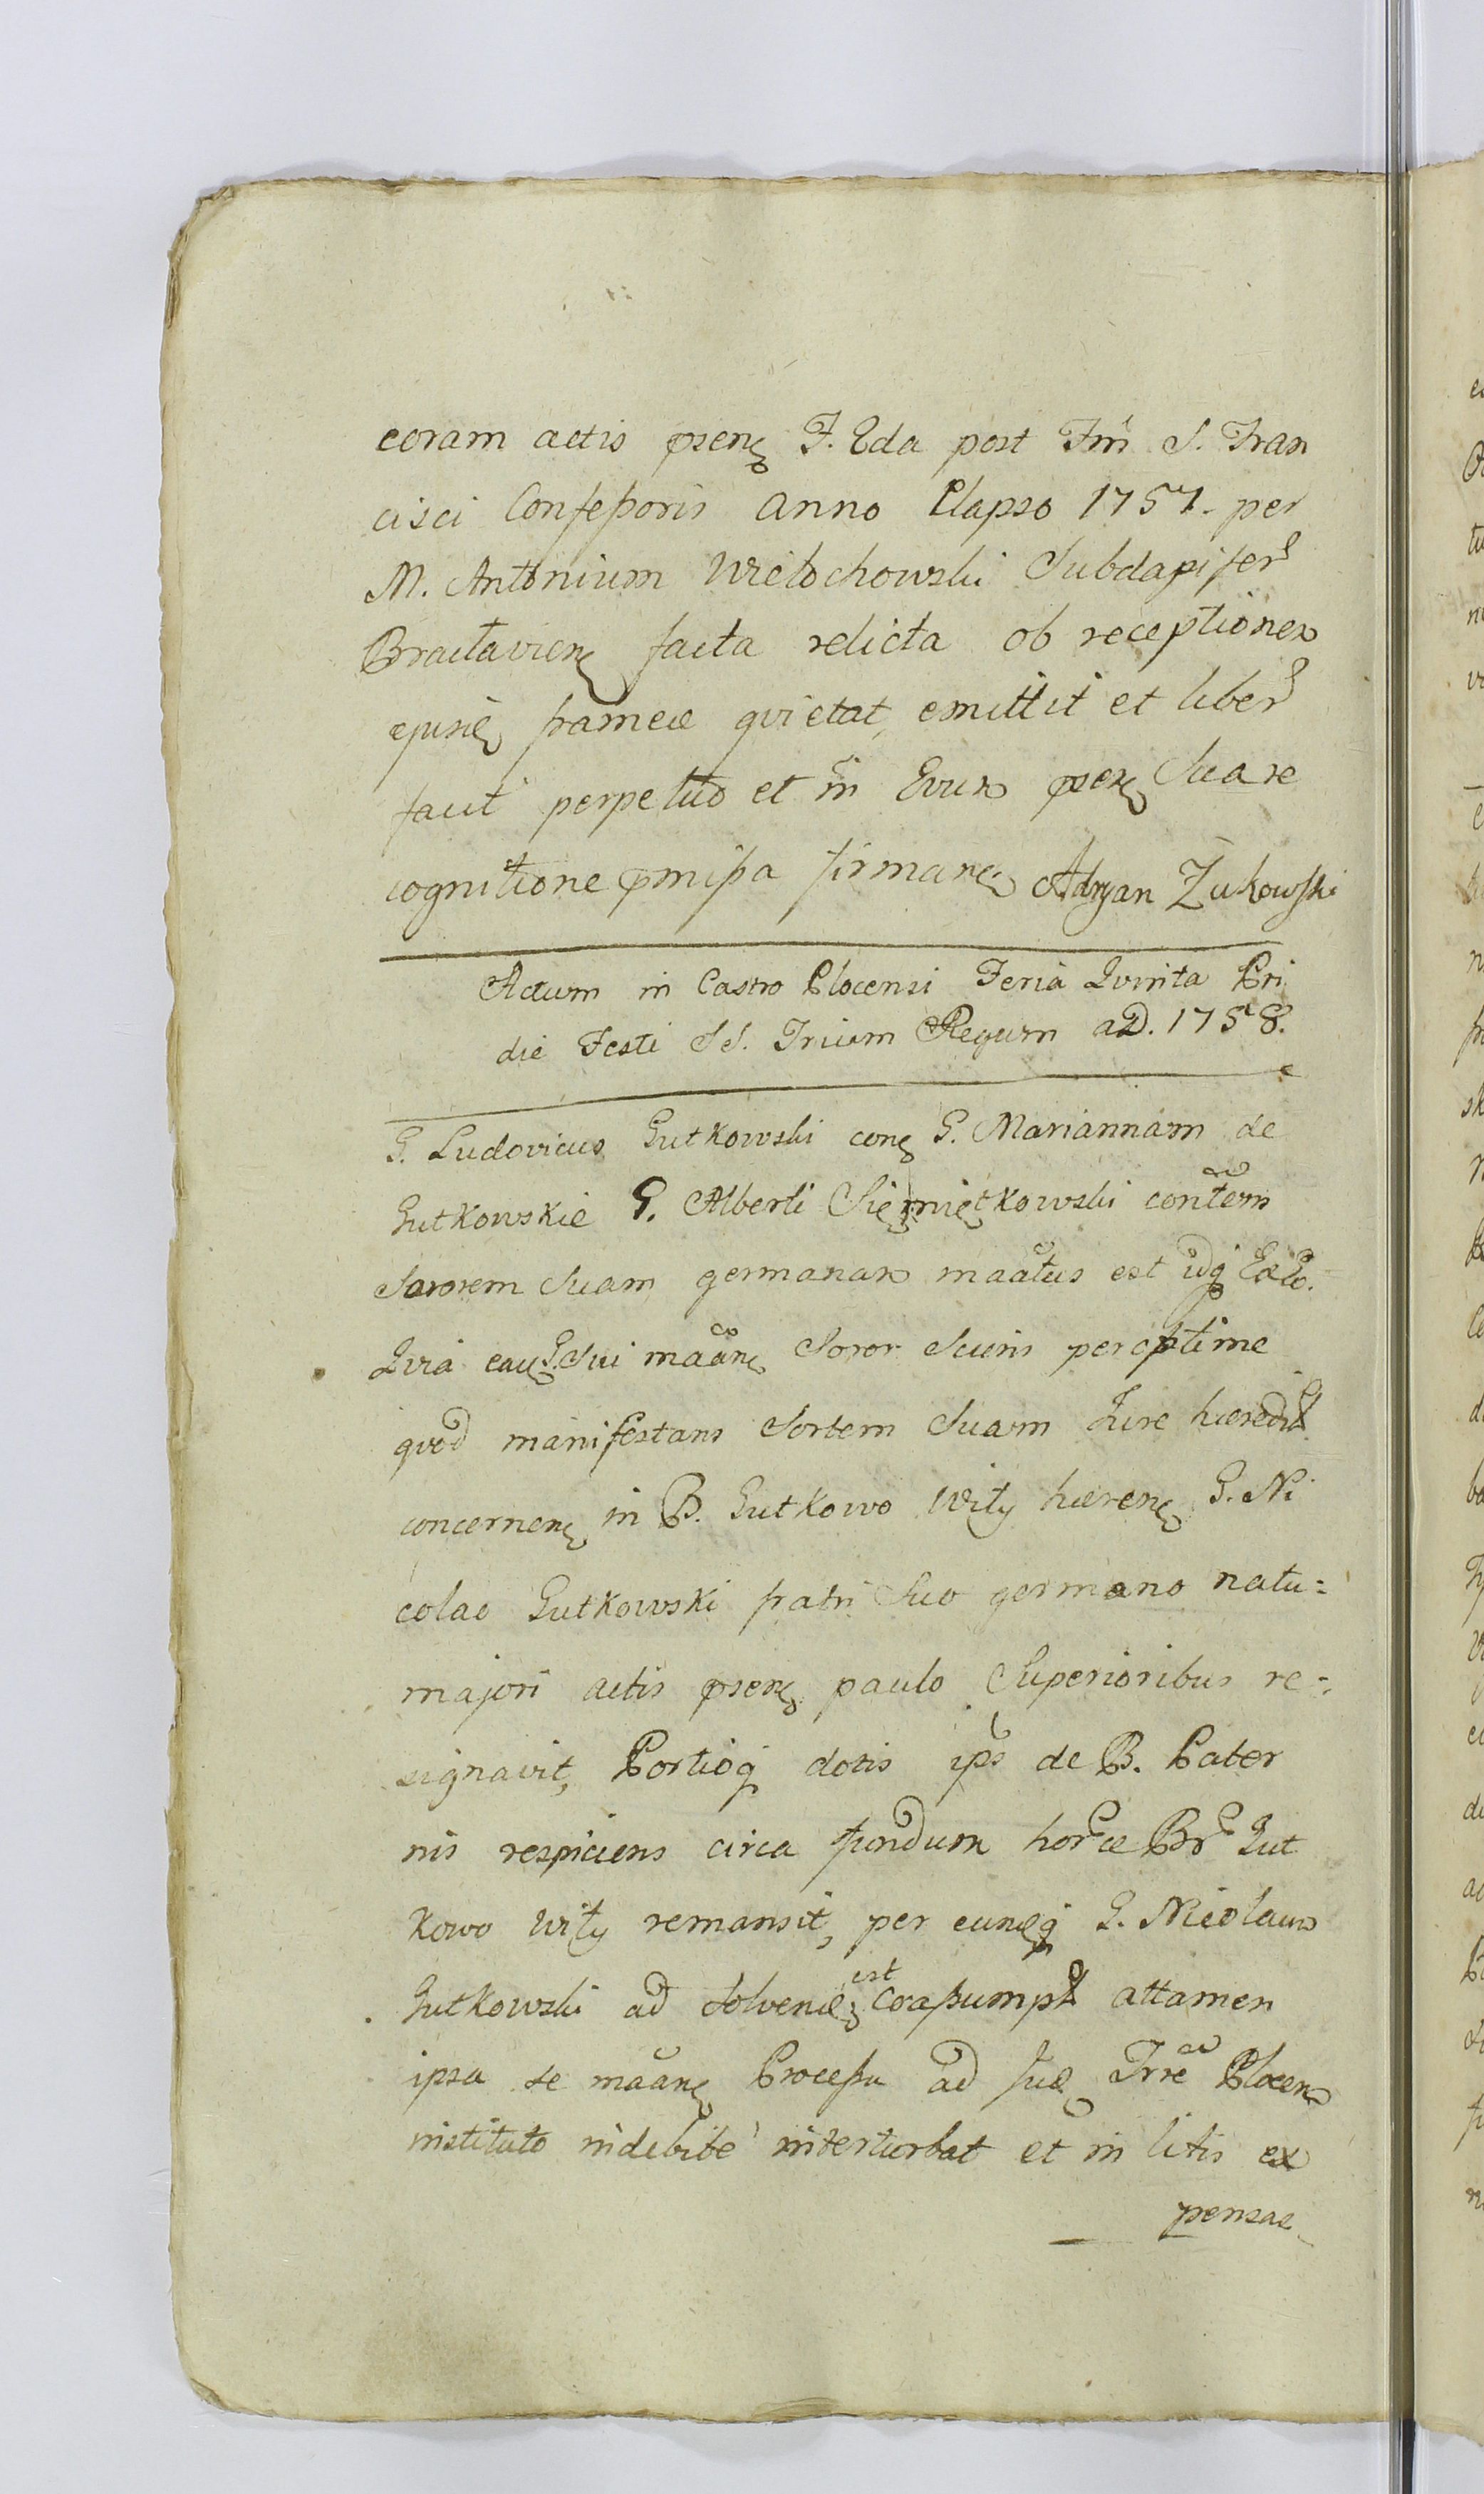 coram actis psen F. 2da post Fm S. Fran
cisci Confessoris anno Elapso 1757. per
M. Antonium Wielochowski Subdapifer
Braclavien facta relicta ob receptionem
ejusd summae qvietat, emittit et liber
facit perpetuo et in Evum psen Sua re
cognitione pmissa firman Adryan Żukowski
Actum in Castro Plocensi Feria Qvinta Pri
die Festi SS. Trium Regum aD. 1758.
G. Ludovicus Gutkowski con G. Mariannam de
Gutkowskie G. Alberti Siemiętkowski contem
Sororem Suam germanam maatus est idq Eo.
Qvia ead G. Sui maan Soror Sciens peroptime
qvod manifestans Sortem Suam Jure haeredit
concernen in B. Gutkowo Wity haeren G. Ni
colao Gutkowski fratri Suo germano natu=
majori actis psen paulo Superioribus re=
signavit, Portioq dotis ips de B. Pater
nis respiciens circa fundum horce Br Gut
kowo Wity remansit, per eundq G. Nicolaum
Gutkowski ad Solvend est coassumpt attamen
ipsa se maan Processu ad Jud Trre Plocen
instituto indebite interturbat et in litis ex
pensas